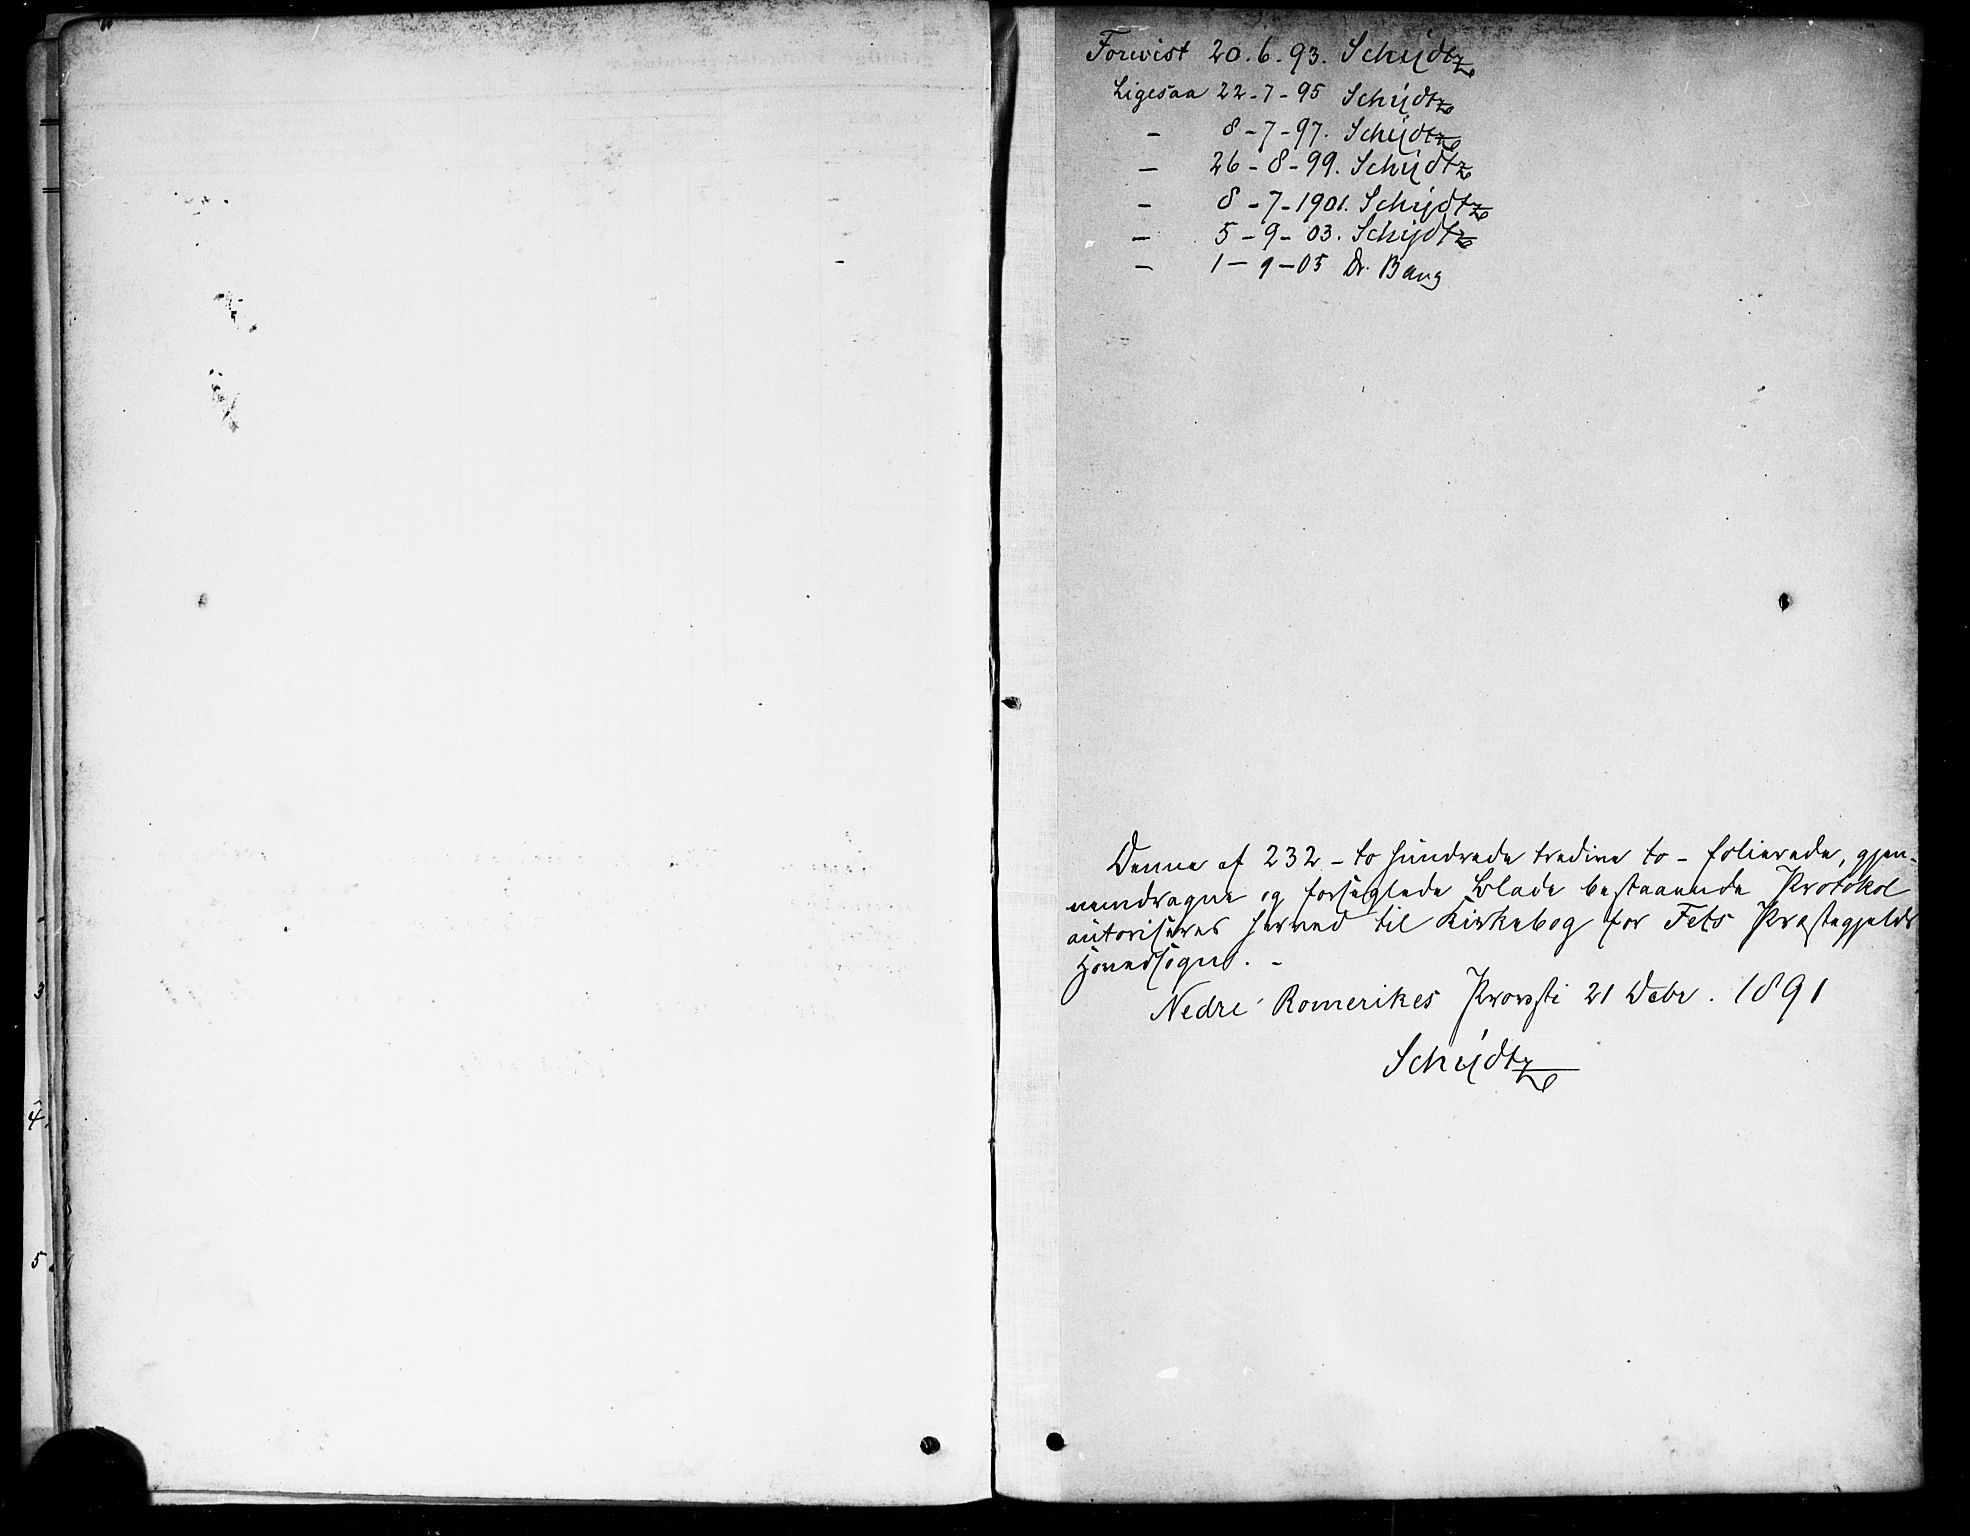 Forevist 20.6.93. Schijdtz
Ligesaa 22-7-95 Schijdtz
- 8-7-97. Schijdtz
- 26-8-99. Schijdtz
- 8-7-1901. Schijdtz
- 5-9-03. Schijdtz
- 1-9-05 Dr. Bang
Denne af 232 - to hundrede tredive to - folierede, gjen-
nemdragne og forseglede Blade bestaaende Protokol
autoriseres herved til Kirkebog for Fets Præstegjelds
Hovedsogn. -
Nedre Romerikes Provsti 21 Debr. 1891
Schijdtz
3
4.
5.